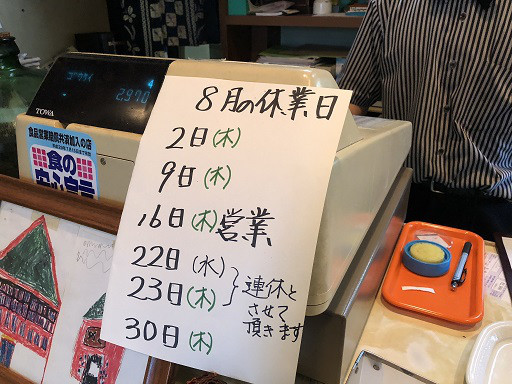 ゴウケイ
2,970
TOWA
食品営業賠償共済加入の店
食の
8月の休業日
2日(木)
9日(木)
16日(木)営業
22日(水)
23日(木)
連休と
させて
頂きます
30日(木)